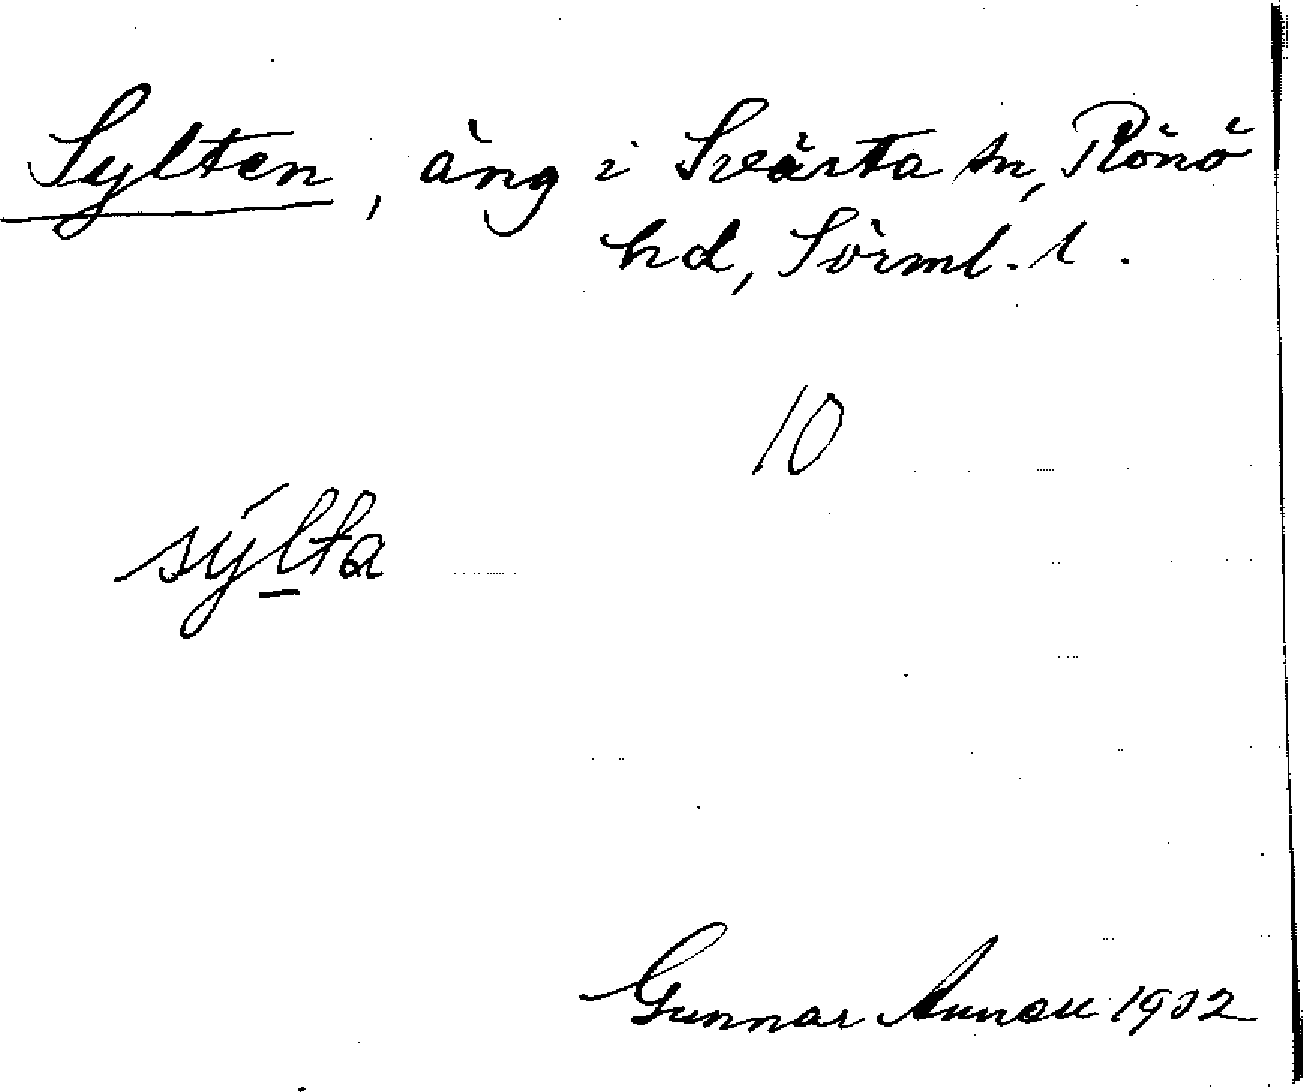 Sylten, äng i Svärta sn, Rönö
hd, Sörml. l.
10
sýlta
Gunnar 1932